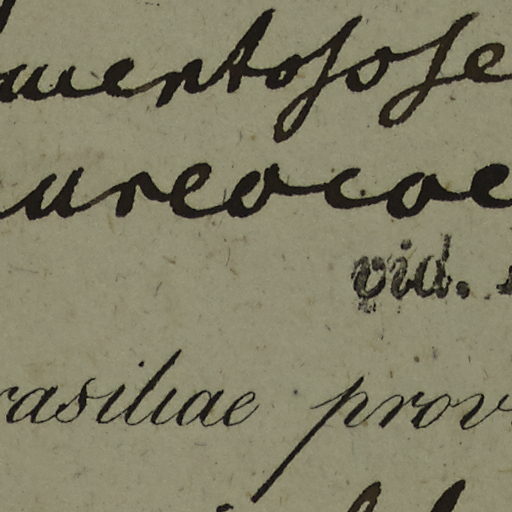 mentosose
aureocoe
vid.
rasiliae prov